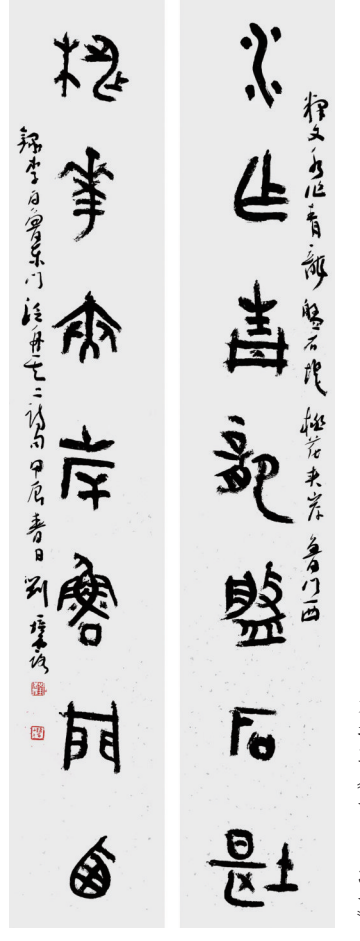 水作青龍盤石堤
桃華夾岸魯門西
釋文 水作青龍盤石堤 桃花夾岸魯門西
錄李白魯東門泛舟其二詩句 甲辰春日 劉